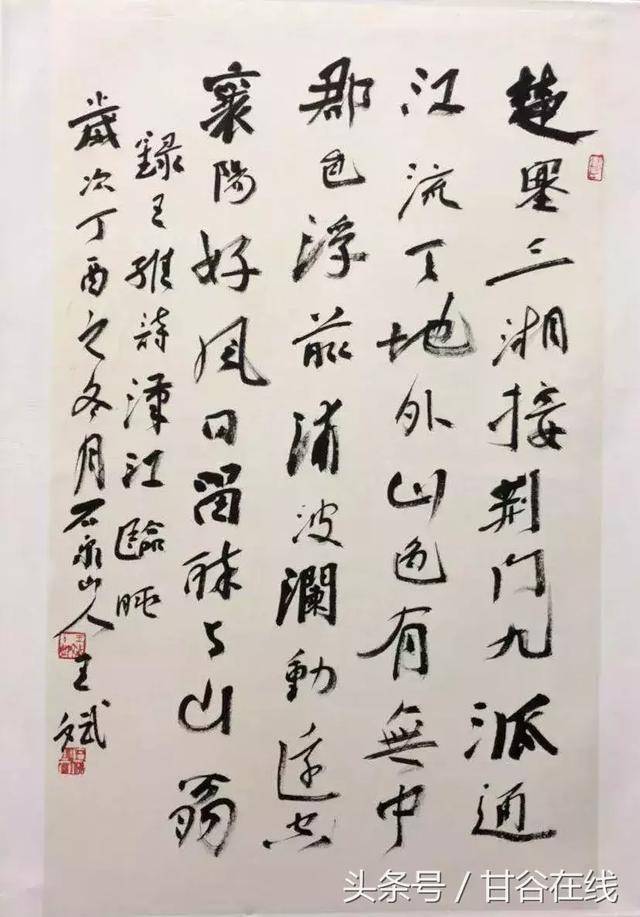 楚塞三湘接荆门九派通
江流天地外山色有無中
郡邑浮前浦波瀾動遠空
襄陽好風日留醉与山翁
錄王維詩漢江臨眺
歲次丁酉之冬月石泉山人王斌
头条号 / 甘谷在线